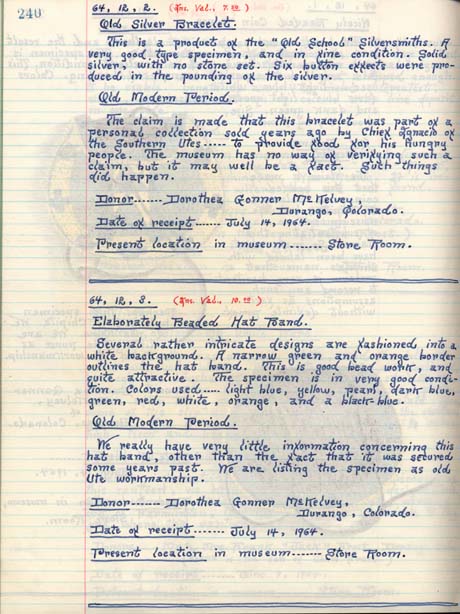 240
64, 12, 2. (Ins. Val., 7.00)
Old Silver Bracelet.
This is a product of the "Old School" Silversmiths. A
very good type specimen, and in fine condition. Solid
silver, with no stone set. Six button effects were pro-
duced in the pounding of the silver.
Old Modern Period.
The claim is made that this bracelet was part of a
personal collection sold years ago by Chief Ignacio of
the Southern Utes ----- to provide food for his hungry
people. The museum has no way of verifying such a
claim, but it may well be a fact. Such things
did happen.
Donor ------- Dorothea Gonner McKelvey,
Durango, Colorado.
Date of receipt ------ July 14, 1964.
Present location in museum ------- Store Room.
64, 12, 3. (Ins. Val., 10.00)
Elaborately Beaded Hat Band.
Several rather intricate designs are fashioned into a
white background. A narrow green and orange border
outlines the hat band. This is good bead work, and
quite attractive. The specimen is in very good condi-
tion. Colors used ..... light blue, yellow, pearl, dark blue,
green, red, white, orange, and a black-blue.
Old Modern Period.
We really have very little information concerning this
hat band, other than the fact that it was secured
some years past. We are listing the specimen as old
Ute workmanship.
Donor ------- Dorothea Gonner McKelvey,
Durango, Colorado.
Date of receipt ------- July 14, 1964.
Present location in museum ------- Store Room.